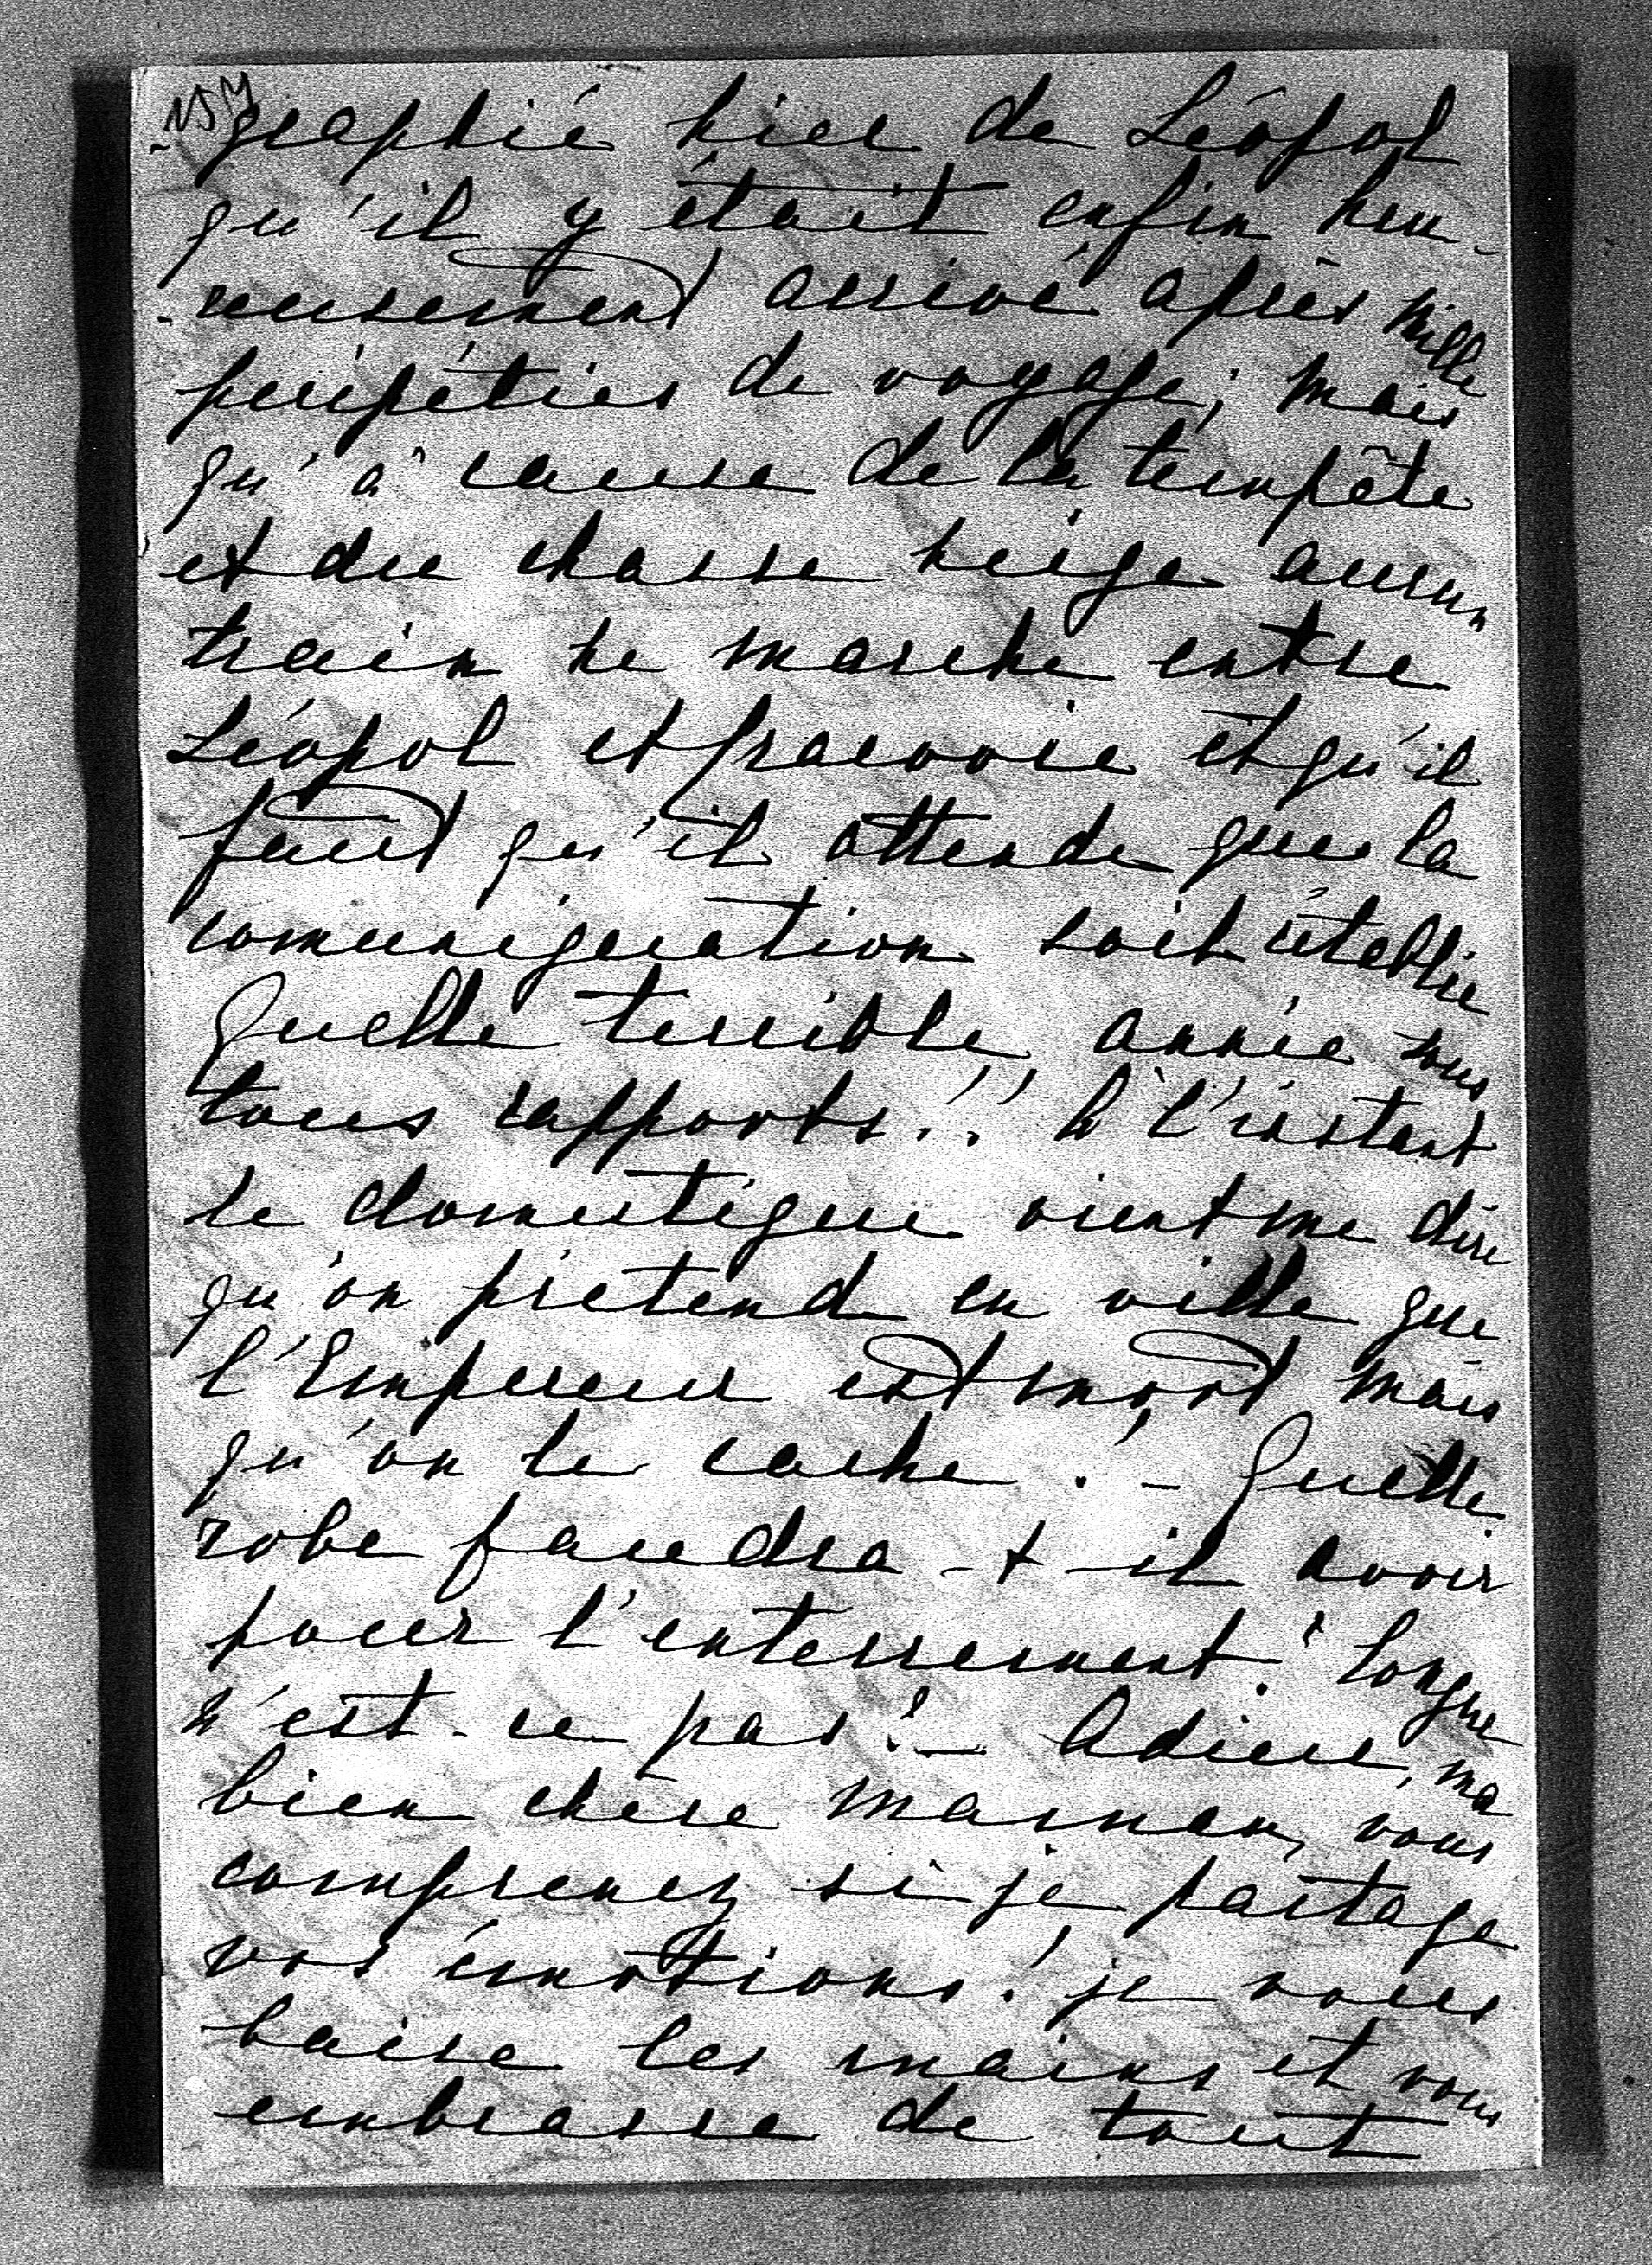 graphié hier de Léopol
qu'il y était enfin heu-
-reusement arrivé après mille
péripéties de voyage; mais
qu'à cause de la tempête
et du chasse neige aucun
train ne marche entre
Léopol et Cracovie et qu'il
faut qu'il attende que la
comuniquation soit rétablie
Quelle terrible année sous
tous rapports!! À l'instant
le domestique vient me dire
qu'on prétend en ville que
l'Empereur est mort mais
qu'on le cache! – Quelle
robe faudra-t-il avoir
pour l'enterrement? Longue
n'est-ce pas? – Adieu, ma
bien chère Maman, vous
comprenez si je partage
vos émotions! je vous
baise les mains et vous
embrasse de tout